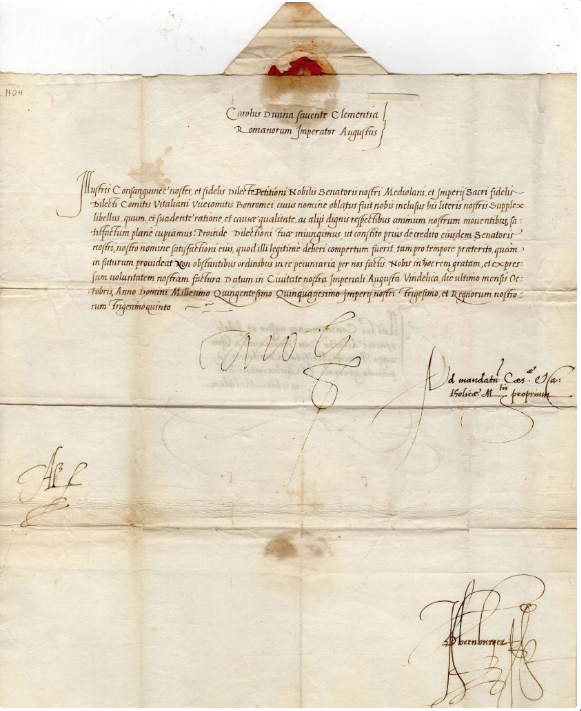 1404
Carolus Divina favente Clementia
Romanorum Imperator Augustus
Illustris Consanguinee noster, et fidelis Dilecte Petitioni Nobilis Senatoris nostri Mediolani, et Imperij Sacri fidelis
Dilecti Comitis Vitaliani Vicecomitis Bonromei cuius nomine oblatus fuit nobis inclusus his literis nostris Supplex
libellus, quum, et suadente ratione, et causae qualitate, ac alijs dignis respectibus animum nostrum moventibus, sa-
tisfactum plane cupiamus Proinde Dilectioni Tuae iniungimus ut constito prius de credito eiusdem Senatoris
nostri, nostro nomine satisfactioni eius, quod illi legitime deberi compertum fuerit tam pro tempore praeterito, quam
in futurum provideat Non obstantibus ordinibus in re pecuniaria per nos factis Nobis in hoc rem gratam, et expres-
sam voluntatem nostram factura Datum in Civitate nostra Imperiali Augusta Vindelica, die ultimo mensis Oc-
tobris, Anno Domini Millesimo Quingentesimo Quinquagesimo Imperij nostri Trigesimo, et Regnorum nostro-
rum Trigesimoquinto
Carolus
Ad mandatum Caes. et Ca-
tholicae M.tis proprium
Obernburger